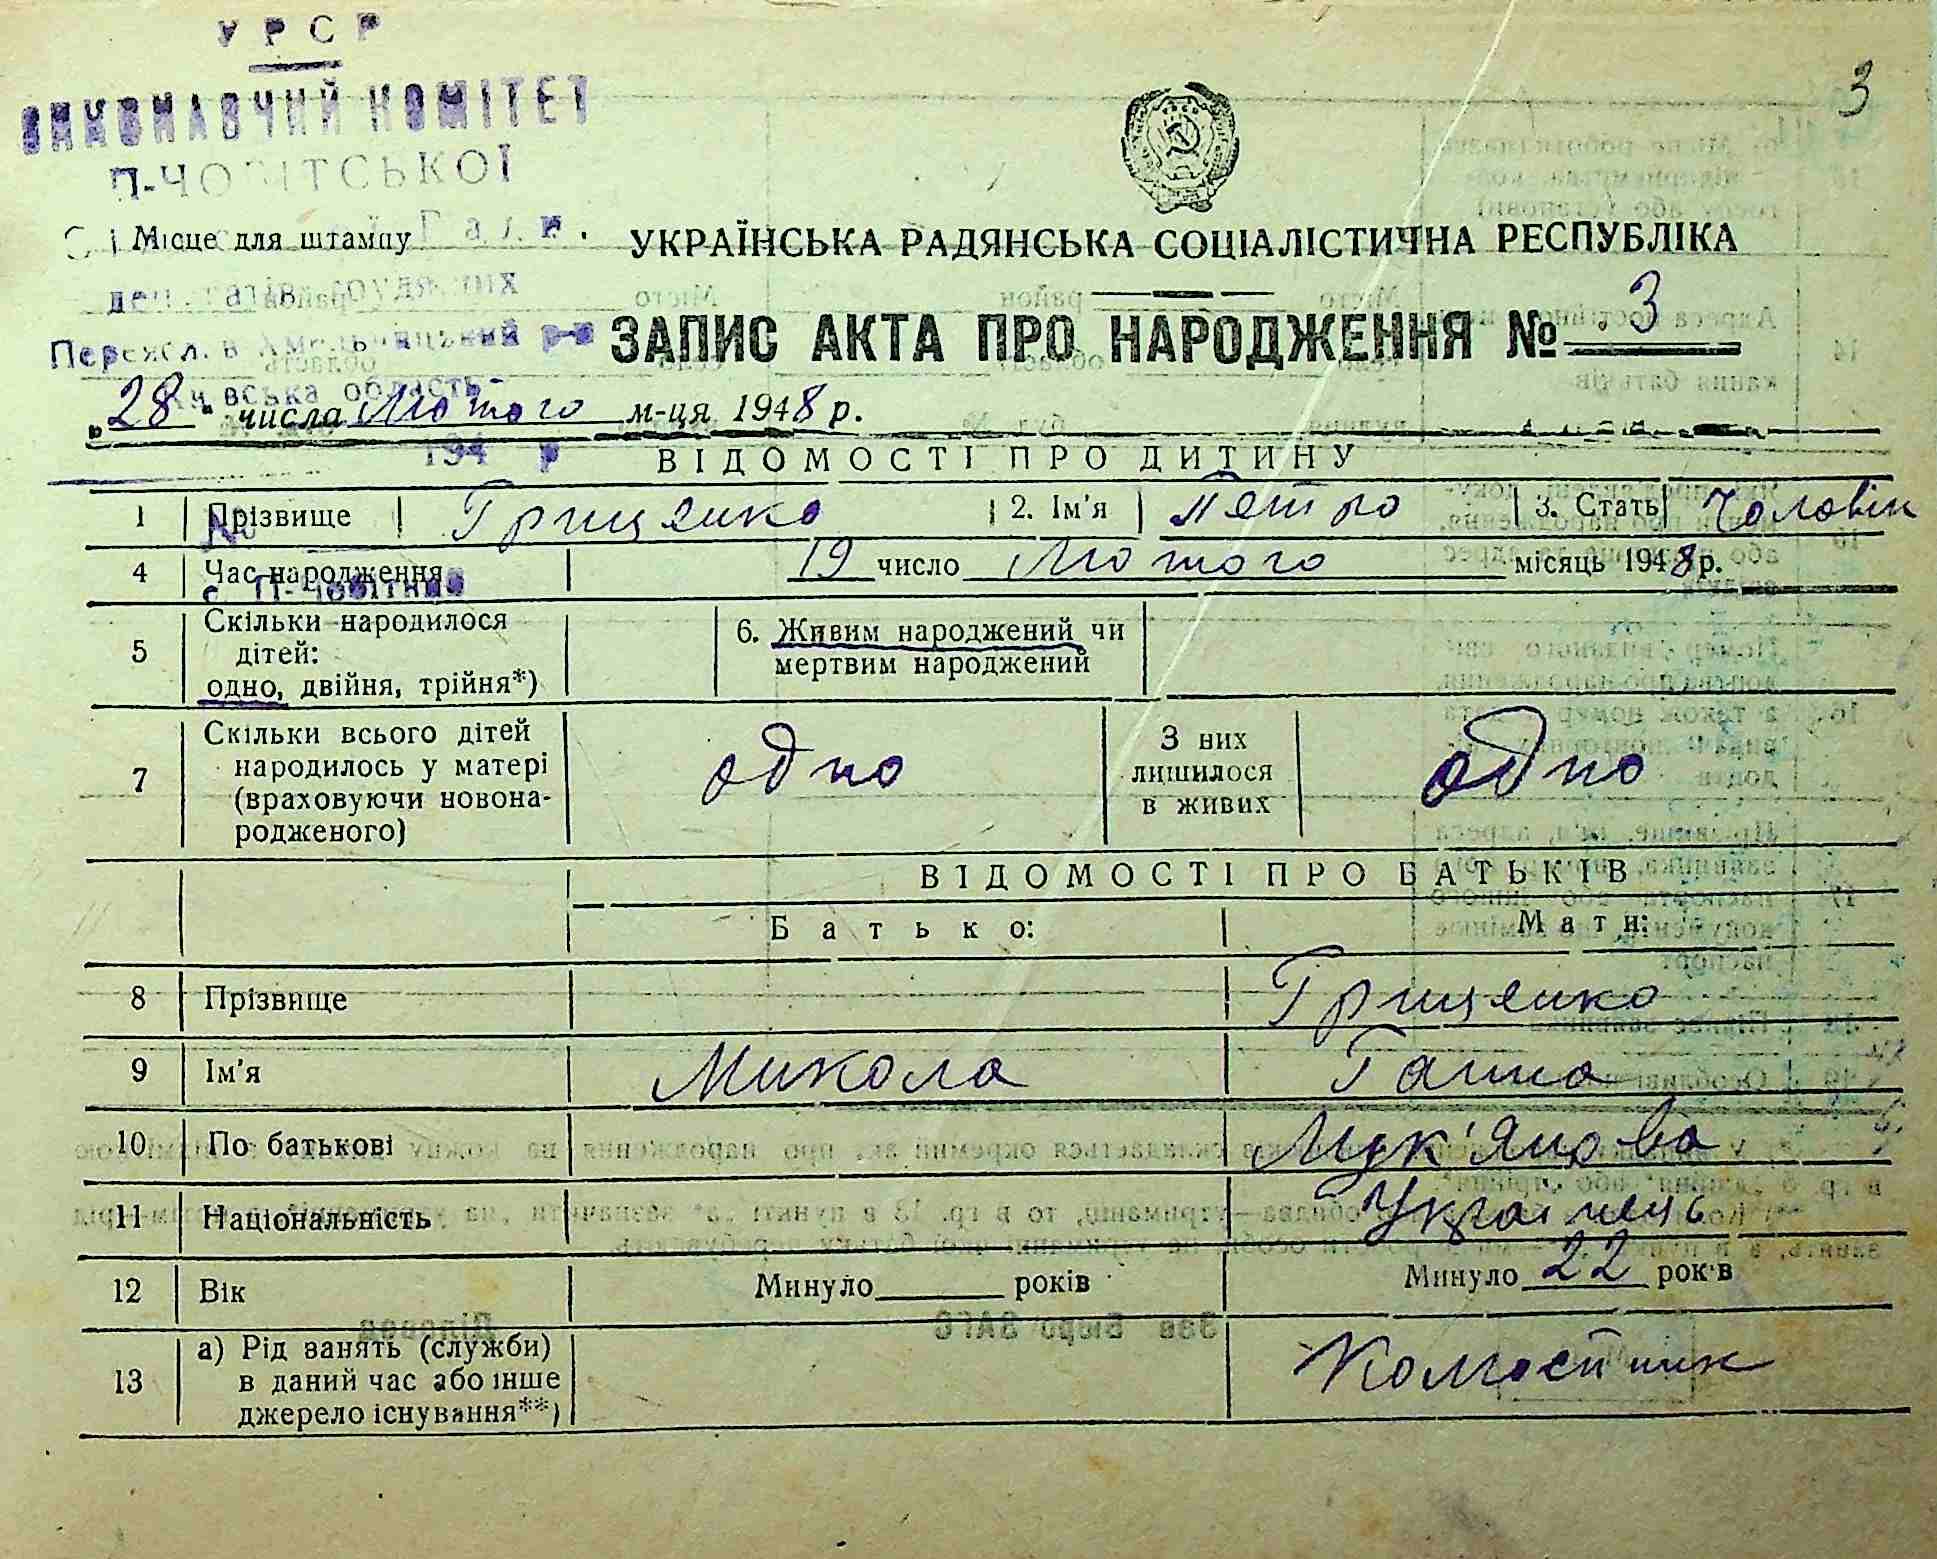 УРСР
ВИКОНАВЧИЙ КОМІТЕТ
3
Місце для штампу
УКРАЇНСЬКА РАДЯНСЬКА СОЦІАЛІСТИЧНА РЕСПУБЛІКА
ЗАПИС АКТА ПРО НАРОДЖЕННЯ № 3
область
„28" числа Лютого м-ця 1948 р.
194 р
ВІДОМОСТІ ПРО ДИТИНУ
1 Прізвище Грищенко 2. Ім'я Петро 3. Стать Чоловік
4 Час народження 19 число Лютого місяць 1948 р.
5 Скільки народилося дітей: одно, двійня, трійня*)
6. Живим народжений чи мертвим народжений
7 Скільки всього дітей народилось у матері (враховуючи новона-родженого) одно З них лишилося в живих одно
ВІДОМОСТІ ПРО БАТЬКІВ
Батько: Мати:
8 Прізвище Грищенко
9 Ім'я Микола Ганна
10 По батькові Лук'янова
11 Національність Українець
12 Вік Минуло років Минуло 22 років
13 а) Рід занять (служби) в даний час або інше джерело існування**) Колгоспник